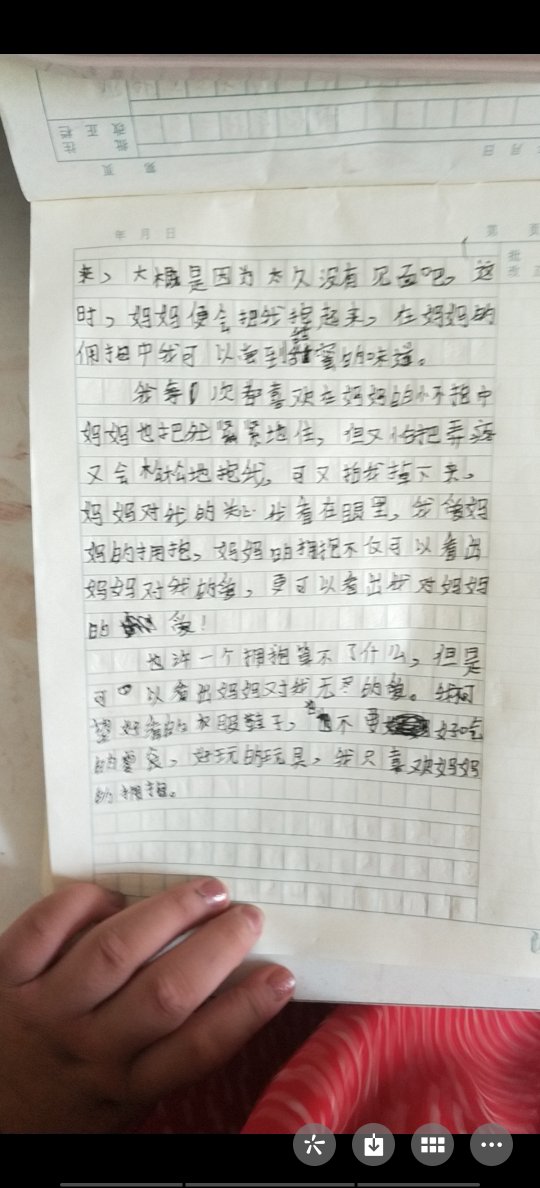 年 月 日
第 页
批
改
来，大概是因为太久没有见面吧，这
时，妈妈便会把我抱起来，在妈妈的
佣抱中我可以尝到甜蜜的味道。
我每1次都喜欢在妈妈的小不抱中
妈妈也把我紧紧地住，但又怕把弄疼
又会松松地抱我，可又怕我掉下来。
妈妈对我的 我看在眼里，我爱妈
妈的拥抱，妈妈的拥抱不仅可以看出
妈妈对我的爱，更可以看出我对妈妈
的 爱！
也许一个拥抱算不了什么，但是
可以看出妈妈对我无尽的爱。我
好看的衣服鞋子，也不要 好吃
的零食，好玩的玩具，我只喜欢妈妈
的拥抱。